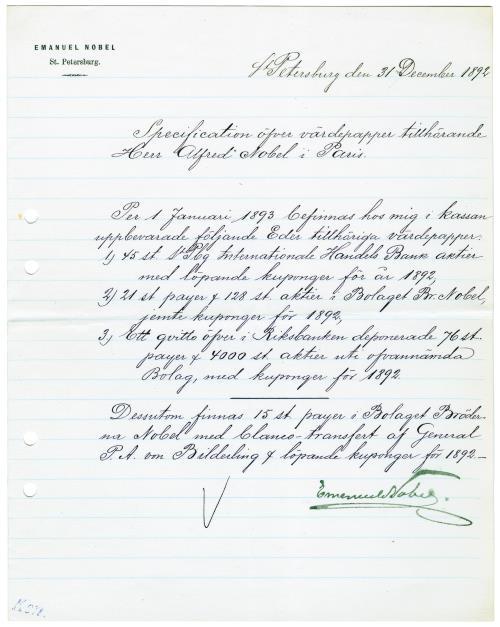 EMANUEL NOBEL
St. Petersburg.
St Petersburg den 31 December 1892
Specification öfver värdepapper tillhörande
Herr Alfred Nobel i Paris.
Per 1 Januari 1893 befinnas hos mig i kassan
uppbevarade följande Eder tillhöriga värdepapper:
1) 45 st. St Pbg Internationale Handels Bank aktier
med löpande kuponger för år 1892,
2) 21 st. payer & 128 st. aktier i Bolaget Br. Nobel,
jemte kuponger för 1892,
3) Ett qvitto öfver i Riksbanken deponerade 76 st.
payer & 4000 st. aktier uti ofvannämda
Bolag, med kuponger för 1892.
Dessutom finnas 15 st. payer i Bolaget Bröder-
na Nobel med blanco-transfert af General
P. A. von Bilderling & löpande kuponger för 1892.—
Emanuel Nobel.